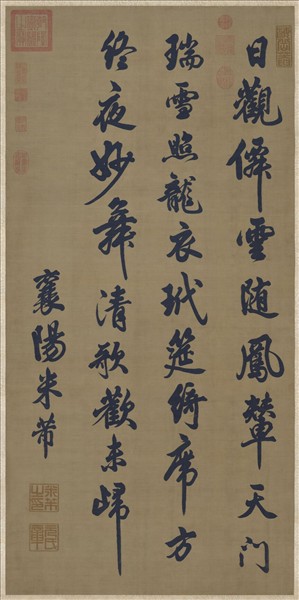 日觀僊雲随鳳輦天门
瑞雪照龍衣玳筵綺席方
終夜妙舞清歌歡未歸
襄陽米芾